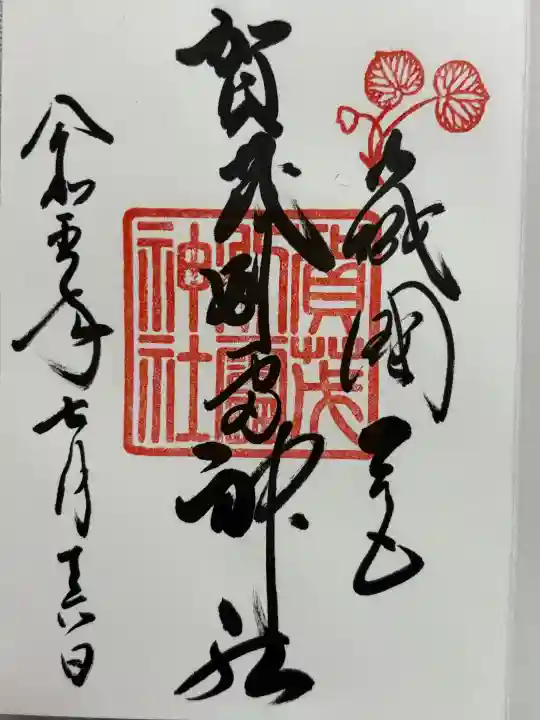 山城國一宮
賀茂別雷神社
令和五年七月十六日
賀茂
別雷
神社